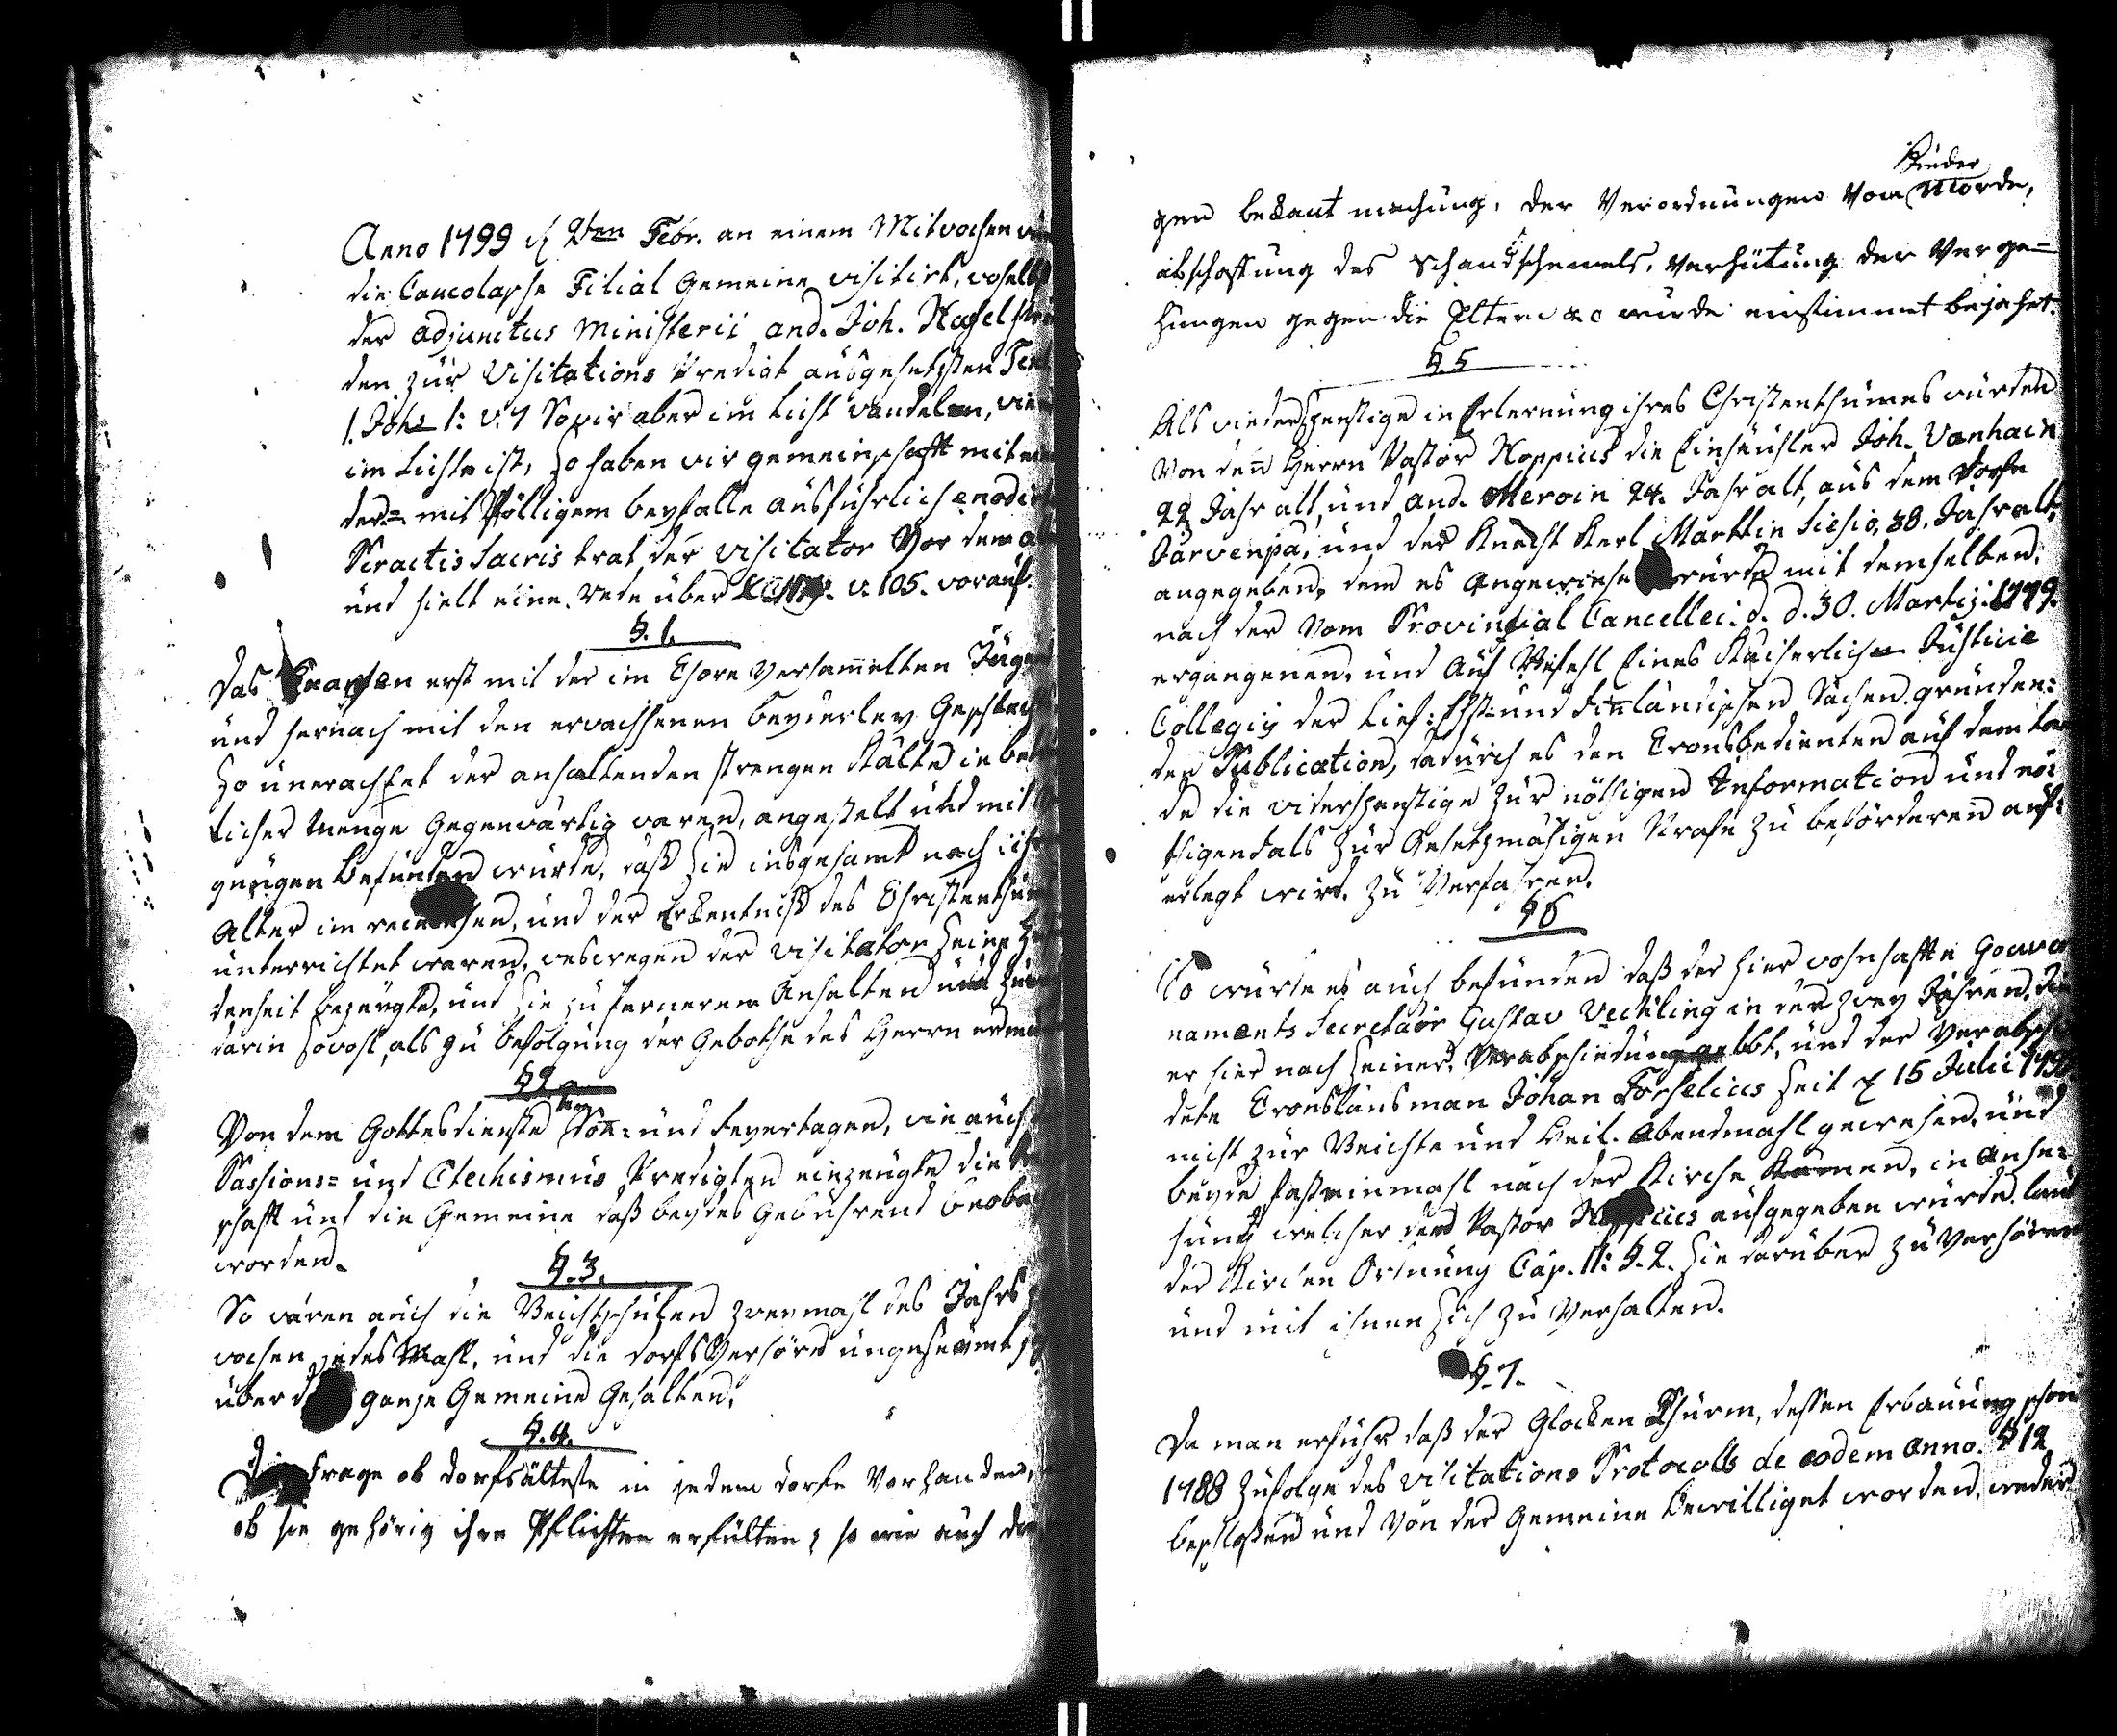 Anno 1799 d 2ten Febr. an einem Mitwochen
die Caucolasche Filial Gemeine visitirt, woselbst
der adjunctus Ministerii and. Joh. Hasselstr
den zur Visitations Predigt ausgesetzten Text
1. Joh. 1: v. 7 So wir aber im Licht wandeln, wie
im Lichte ist, so haben wir gemeinschafft mit
der = mit Völligem beyfalle ausführlich enodirt
Peractis Sacris trat der Visitator Vor dem
und hielt eine rede über v. 105. vorauf.
§. 1.
Das erst mit der im Chore Versamelten Jugend
und hernach mit den erwachsenen beyderley Geschlecht
so unerachtet der anhaltenden strengen Kälte in
licher Menge Gegenwärtig waren, angestelt und mit
gnügen befunden wurde, daß sie insgesamt nach
Alter im und der Erkentniß des Christenthum
unterrichtet waren, weswegen der Visitator seine
denheit bezeugte, und sie zu fernerem Anhalten und
darin sowohl als zu befolgung der Gebothe des Herrn
§ 2
Von dem Gottesdienste Son= und feyertagen, wie auch
Passions= und Ctechismus Predigten einzeugte die
schafft und die Gemeine daß beydes Gebührend
worden.
§. 3.
So wären auch die Beichtschulen zweymahl des Jahrs
wochen jedes Mahl, und die dorfs Verhöre ungesäumt
über ganze Gemeine Gehalten.
§. 4.
Frage ob dorfsälteste in jedem dorfe Vorhanden,
ob sie gehörig ihre Pflichten erfülten, so wie auch
Kinder
gen bekant machung, der Verordnungen Vom Morde,
abschaffung des Schandschemels, Verhütung der Verge=
hungen gegen die Eltern &c wurde einstimmet bejahet.
§. 5
Als wiederspenstige in Erlernung ihres Christenthumes würden
Von den Herrn Pastor Hoppius die Einhäusler Joh. Vanhain
22 Jahr alt, und And. Meroin 24. Jahr alt, aus dem Dorfe
Järvenpä, und der Knecht Karl Marttin Siesio, 38. Jahr alt,
angegeben, dem es Angewiese wurde mit demselben,
nach der Vom Provincial Cancellei. d. d. 30. Martij. 1779.
ergangenen, und Auf Befehl Eines Kaiserlichen Justicie
Collegij der Lief: Ehst= und Finländischen Sachen gründen:
den Publication, dadurch es den Cronsbedienten auf dem
de die widerspenstige zur nöthigen Information und nö:
thigenfals zur Gesetzmäsigen Strafe zu beförderen auf:
erlegt wird. zu Verfahren.
§ 6
So wurde es auch befunden daß der hier wohnhaffte Gouver
naments Secretair Gustav Wechling in der zwey Jahren, die
er hier nach seiner Verabschiedung gelebt, und der Verabschi
dete Cronslänsman Johan Forselius seit d 15 Julii 179
nicht zur Beichte und Heil. Abendmahl gewesen, und
beyde fast einmahl nach der Kirche kämen, in Anse:
hung welcher dem Pastor Hoppius aufgegeben wurde laut
der Kirchen Ordnung Cap. 11: §. 2. sie darüber zu Verhören
und mit ihnen sich zu Verhalten.
§. 7.
Da man erfuhr daß der Glocken Thurm, dessen Erbauung schon
1788 zufolge des Visitations Protocolls de eodem anno. § 12
beschloßen und Von der Gemeine bewilliget worden, weder